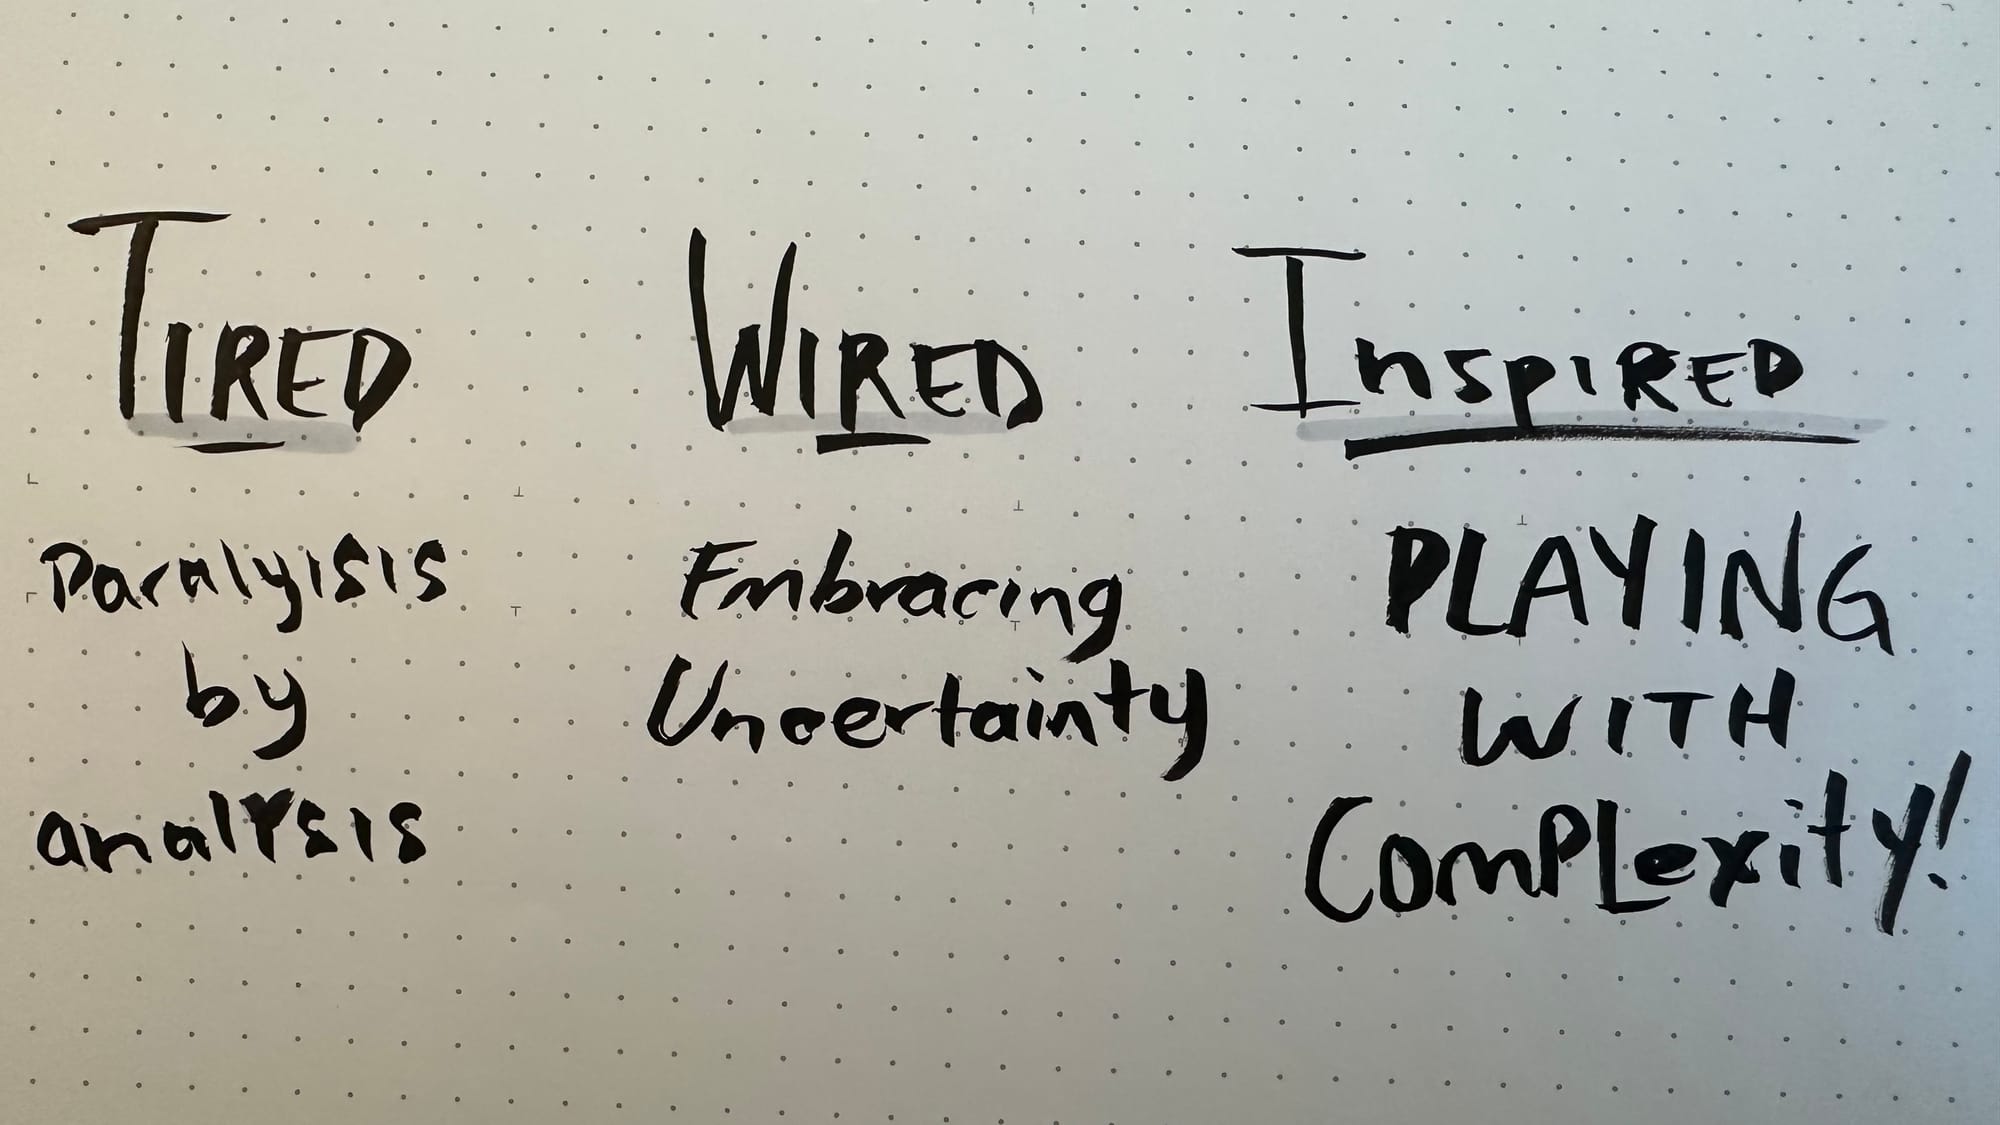 TIRED
Paralyisis
by
analysis
WIRED
Embracing
Uncertainty
InspIRED
PLAYING
WITH
ComPLexity!